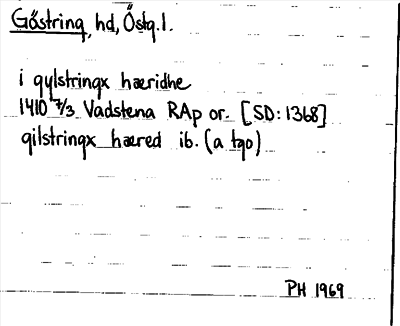 Göstring, hd, Östg.l.
i gylstringx hæridhe
1410 7/3 Vadstena RAp or. [SD: 1368]
gilstringx hæred ib. (a tgo)
PH 1969